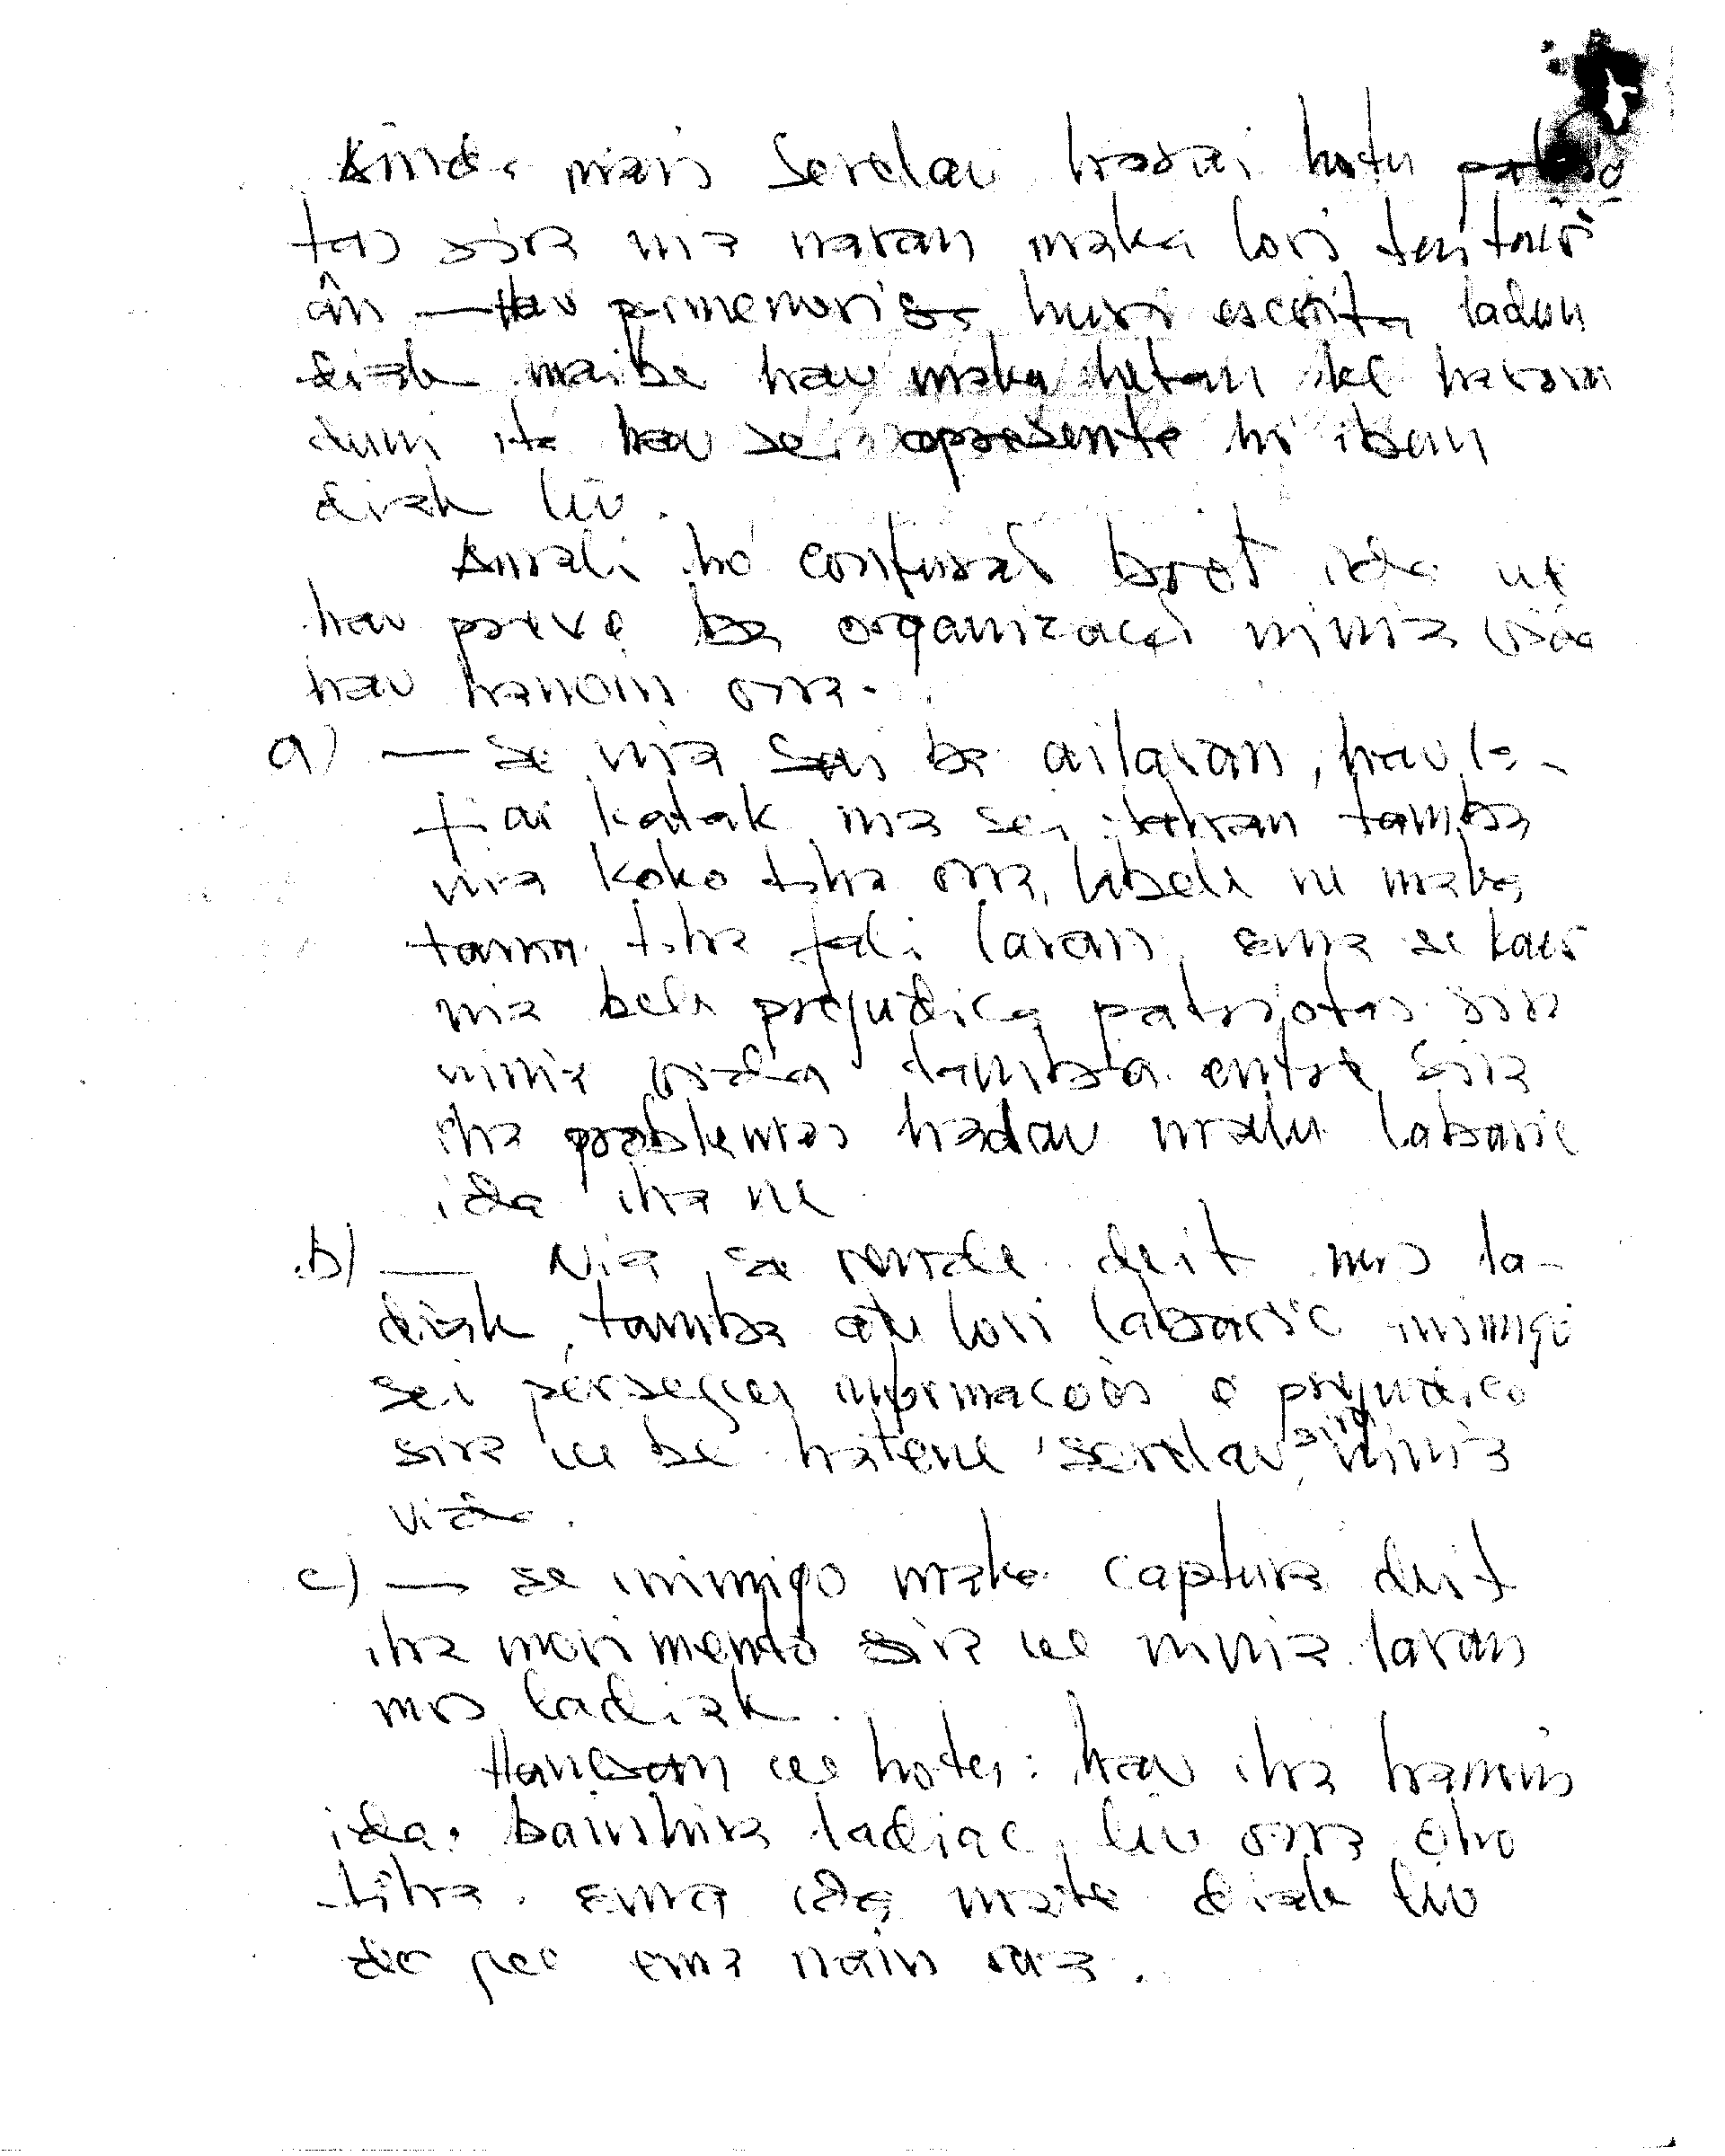 Ainda mais serdau harai hotu patrio
tas sira nia naran maka lori tentaçi
ân — Hau pormenoriza husi escrita ladun
diak maibe hau maka hetan ke haraan
duni ita hau sei apresente hi iban
diak liu.
Amali ho confusaõ boot ida ne
hau preve ba organizaçaõ ninia visão
hau hanoin ona.
a) — Se nia sai ba ailaran, hau la-
fiar katak nia sei tahan tamba
nia koko tiha ona, labele ne maka
tama tiha fali laran, ema se kaer
nia bele prejudica patriotas sira
ninia vida tamba entre sira
iha problemas hadau malu labarik
ida iha ne
b) — Nia se rende deit mos la-
diak, tamba atu lori labarik inimigo
sei persegue informacões e prejudica
sira ne be hatene serdau sira ninia
vida.
c) — se inimigo maka captura deit
iha morimento sira ne ninia laran
mos ladiak.
Hanesan ne hotu: hau iha hanoin
ida. bainhira ladiac liu ona oho
tiha. ema ida mate diak liu
do que ema nain rua.